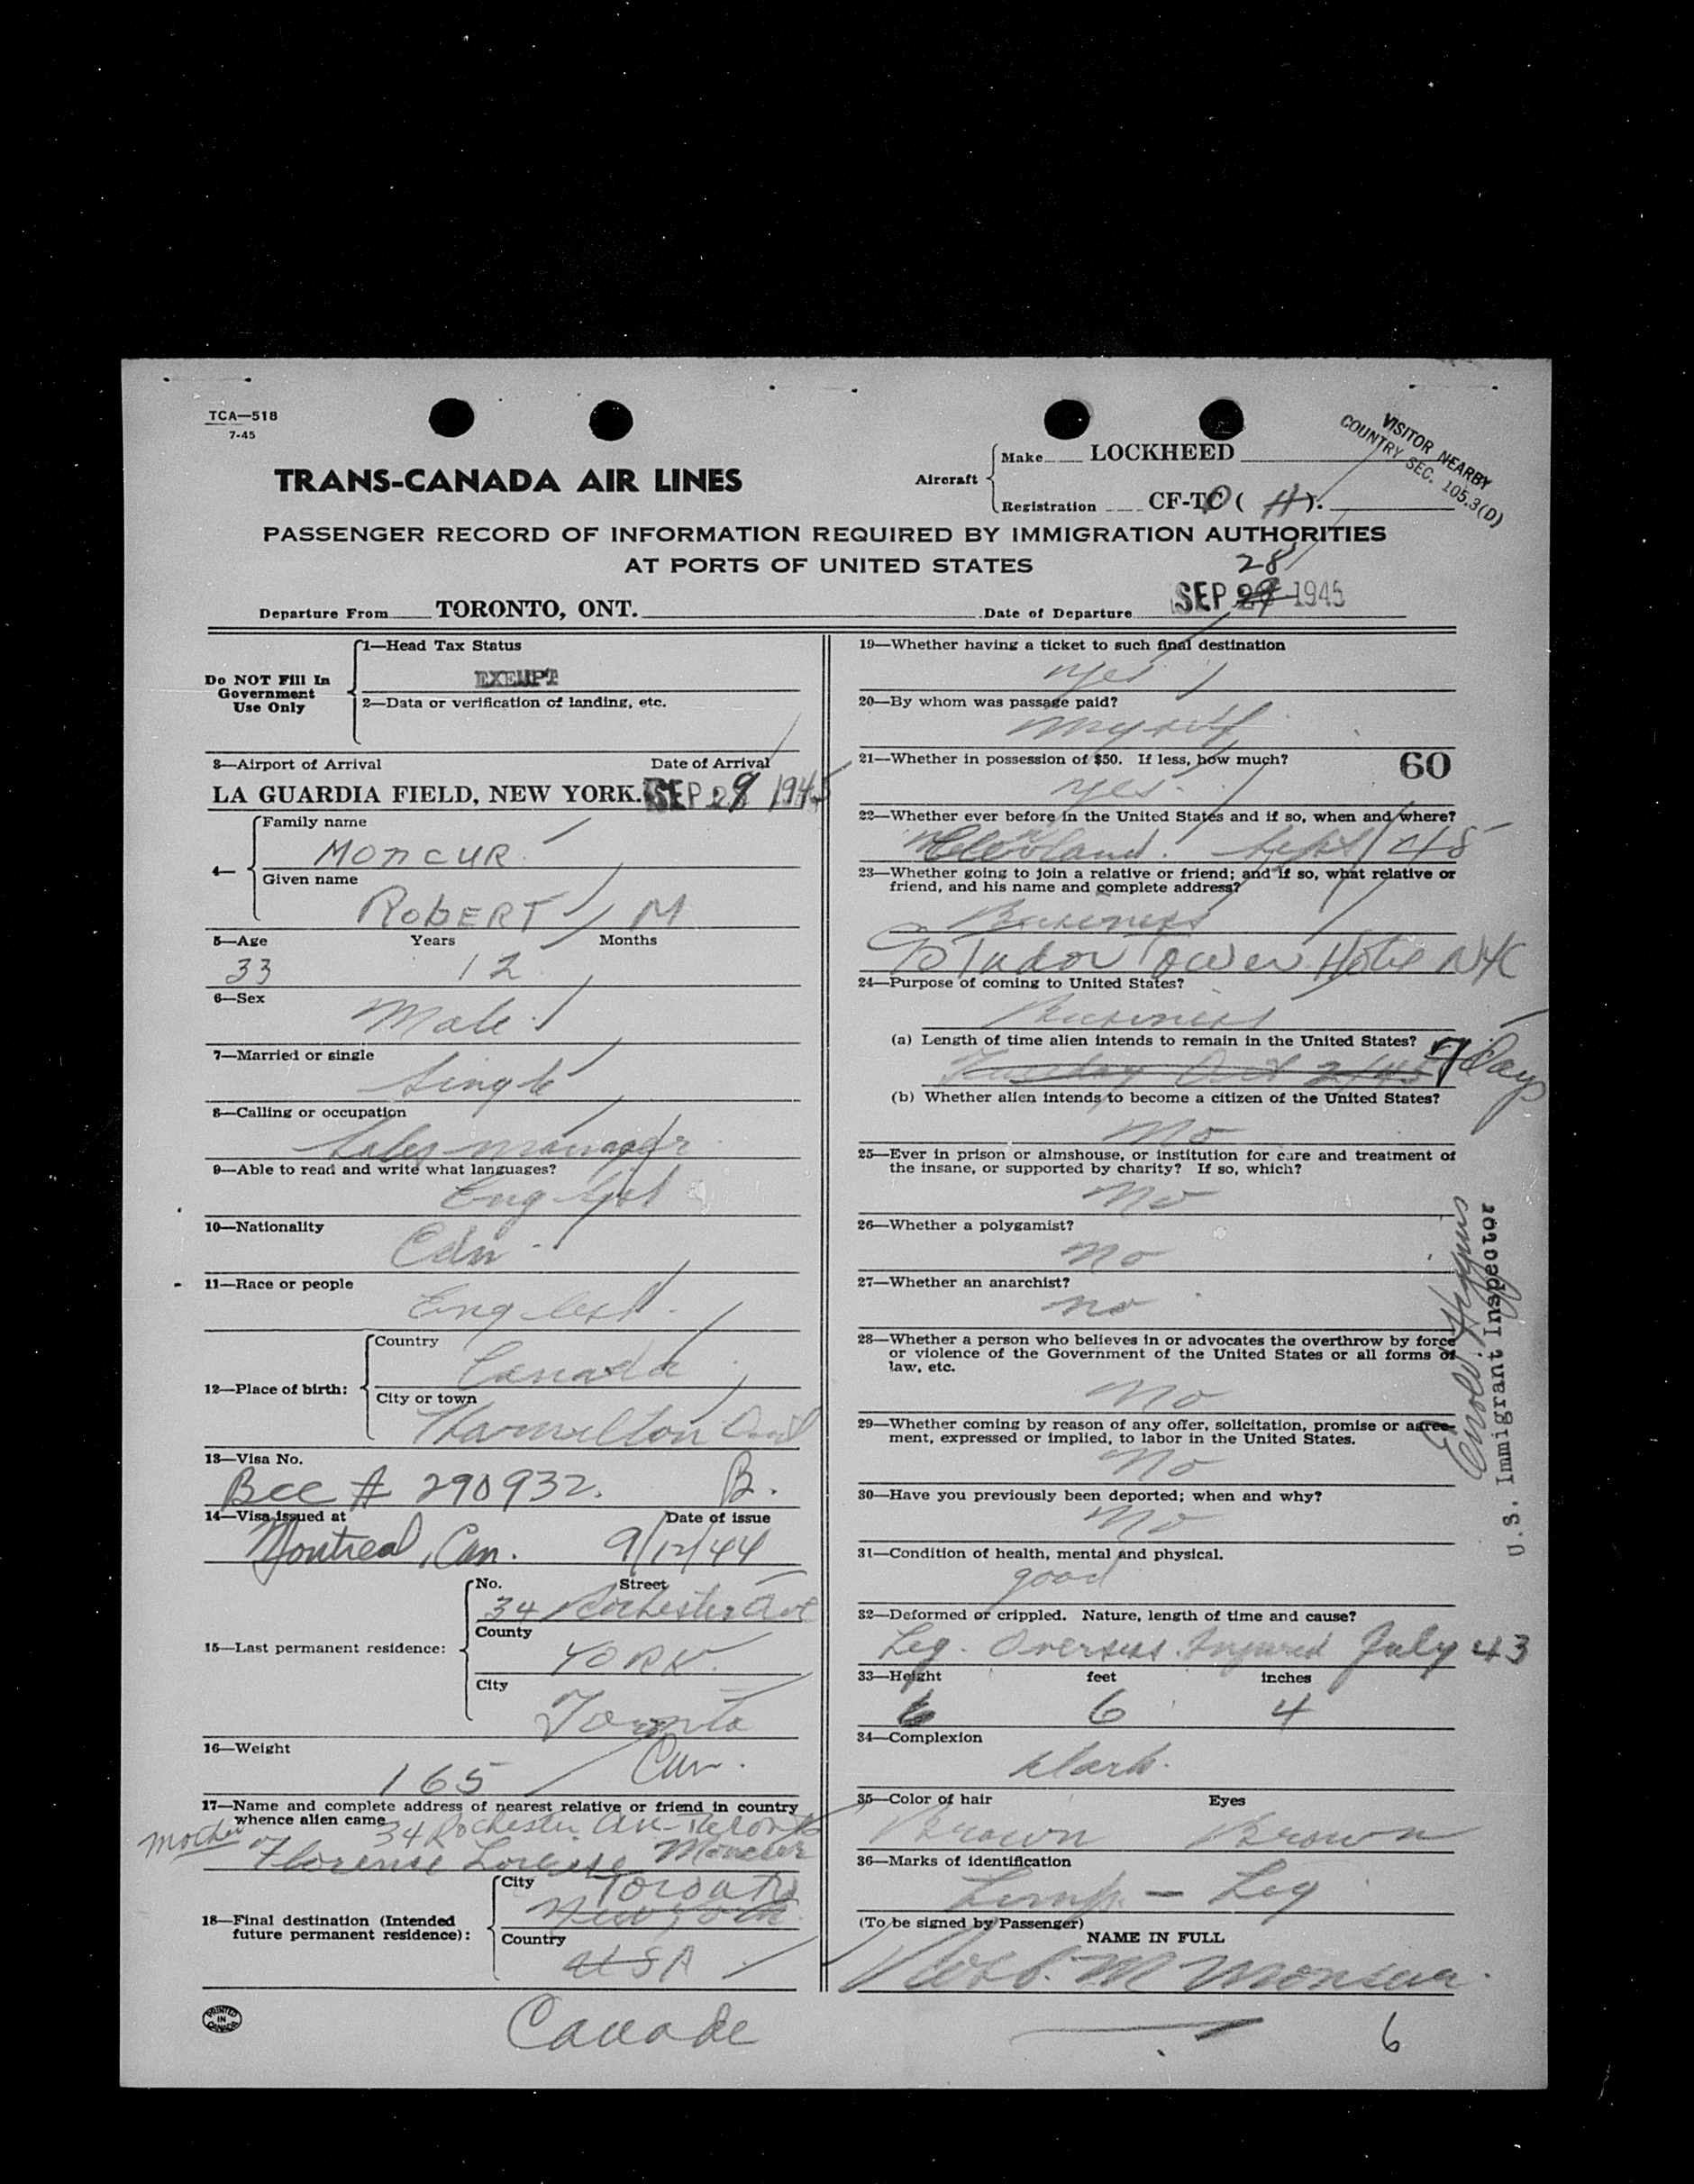 TCA—518
7-45
VISITOR NEARBY
COUNTRY SEC. 105.3(D)
TRANS-CANADA AIR LINES
Aircraft
Make LOCKHEED
Registration CF-TC ( H ).
PASSENGER RECORD OF INFORMATION REQUIRED BY IMMIGRATION AUTHORITIES
AT PORTS OF UNITED STATES
28
Departure From TORONTO, ONT. Date of Departure SEP 29 1945
Do NOT Fill In
Government
Use Only
1—Head Tax Status
EXEMPT
2—Data or verification of landing, etc.
3—Airport of Arrival Date of Arrival
LA GUARDIA FIELD, NEW YORK. SEP 28 1945
4—
Family name
MONCUR
Given name
ROBERT M
5—Age Years Months
33 12
6—Sex
Male
7—Married or single
Single
8—Calling or occupation
Sales manager
9—Able to read and write what languages?
English
10—Nationality
Cdn
11—Race or people
English
12—Place of birth:
Country
Canada
City or town
Hamilton Ont
13—Visa No.
Bcc # 290932. B.
14—Visa issued at Date of issue
Montreal, Can. 9/12/44
15—Last permanent residence:
No. Street
34 Rochester Ave
County
YORK
City
Toronto
Can.
16—Weight
165
17—Name and complete address of nearest relative or friend in country
whence alien came
34 Rochester Ave Toronto
Mother Florence Louise Moncur
18—Final destination (Intended
future permanent residence):
City
Toronto
New York
Country
USA
Canada
PRINTED IN CANADA
19—Whether having a ticket to such final destination
yes
20—By whom was passage paid?
myself
21—Whether in possession of $50. If less, how much? 60
yes
22—Whether ever before in the United States and if so, when and where?
Cleveland. Sept / 45
23—Whether going to join a relative or friend; and if so, what relative or
friend, and his name and complete address?
Business
Tudor Tower Hotel NYC
24—Purpose of coming to United States?
Business
(a) Length of time alien intends to remain in the United States?
Tuesday Oct 2/45 7 Days
(b) Whether alien intends to become a citizen of the United States?
No
25—Ever in prison or almshouse, or institution for care and treatment of
the insane, or supported by charity? If so, which?
No
26—Whether a polygamist?
No
27—Whether an anarchist?
no
28—Whether a person who believes in or advocates the overthrow by force
or violence of the Government of the United States or all forms of
law, etc.
No
29—Whether coming by reason of any offer, solicitation, promise or agree-
ment, expressed or implied, to labor in the United States.
No
30—Have you previously been deported; when and why?
No
31—Condition of health, mental and physical.
good
32—Deformed or crippled. Nature, length of time and cause?
Leg. Overseas. Injured July 43
33—Height feet inches
6 6 4
34—Complexion
dark.
35—Color of hair Eyes
Brown Brown
36—Marks of identification
Limp — Leg
(To be signed by Passenger)
NAME IN FULL
Robt. M Moncur
6
U.S. Immigrant Inspector